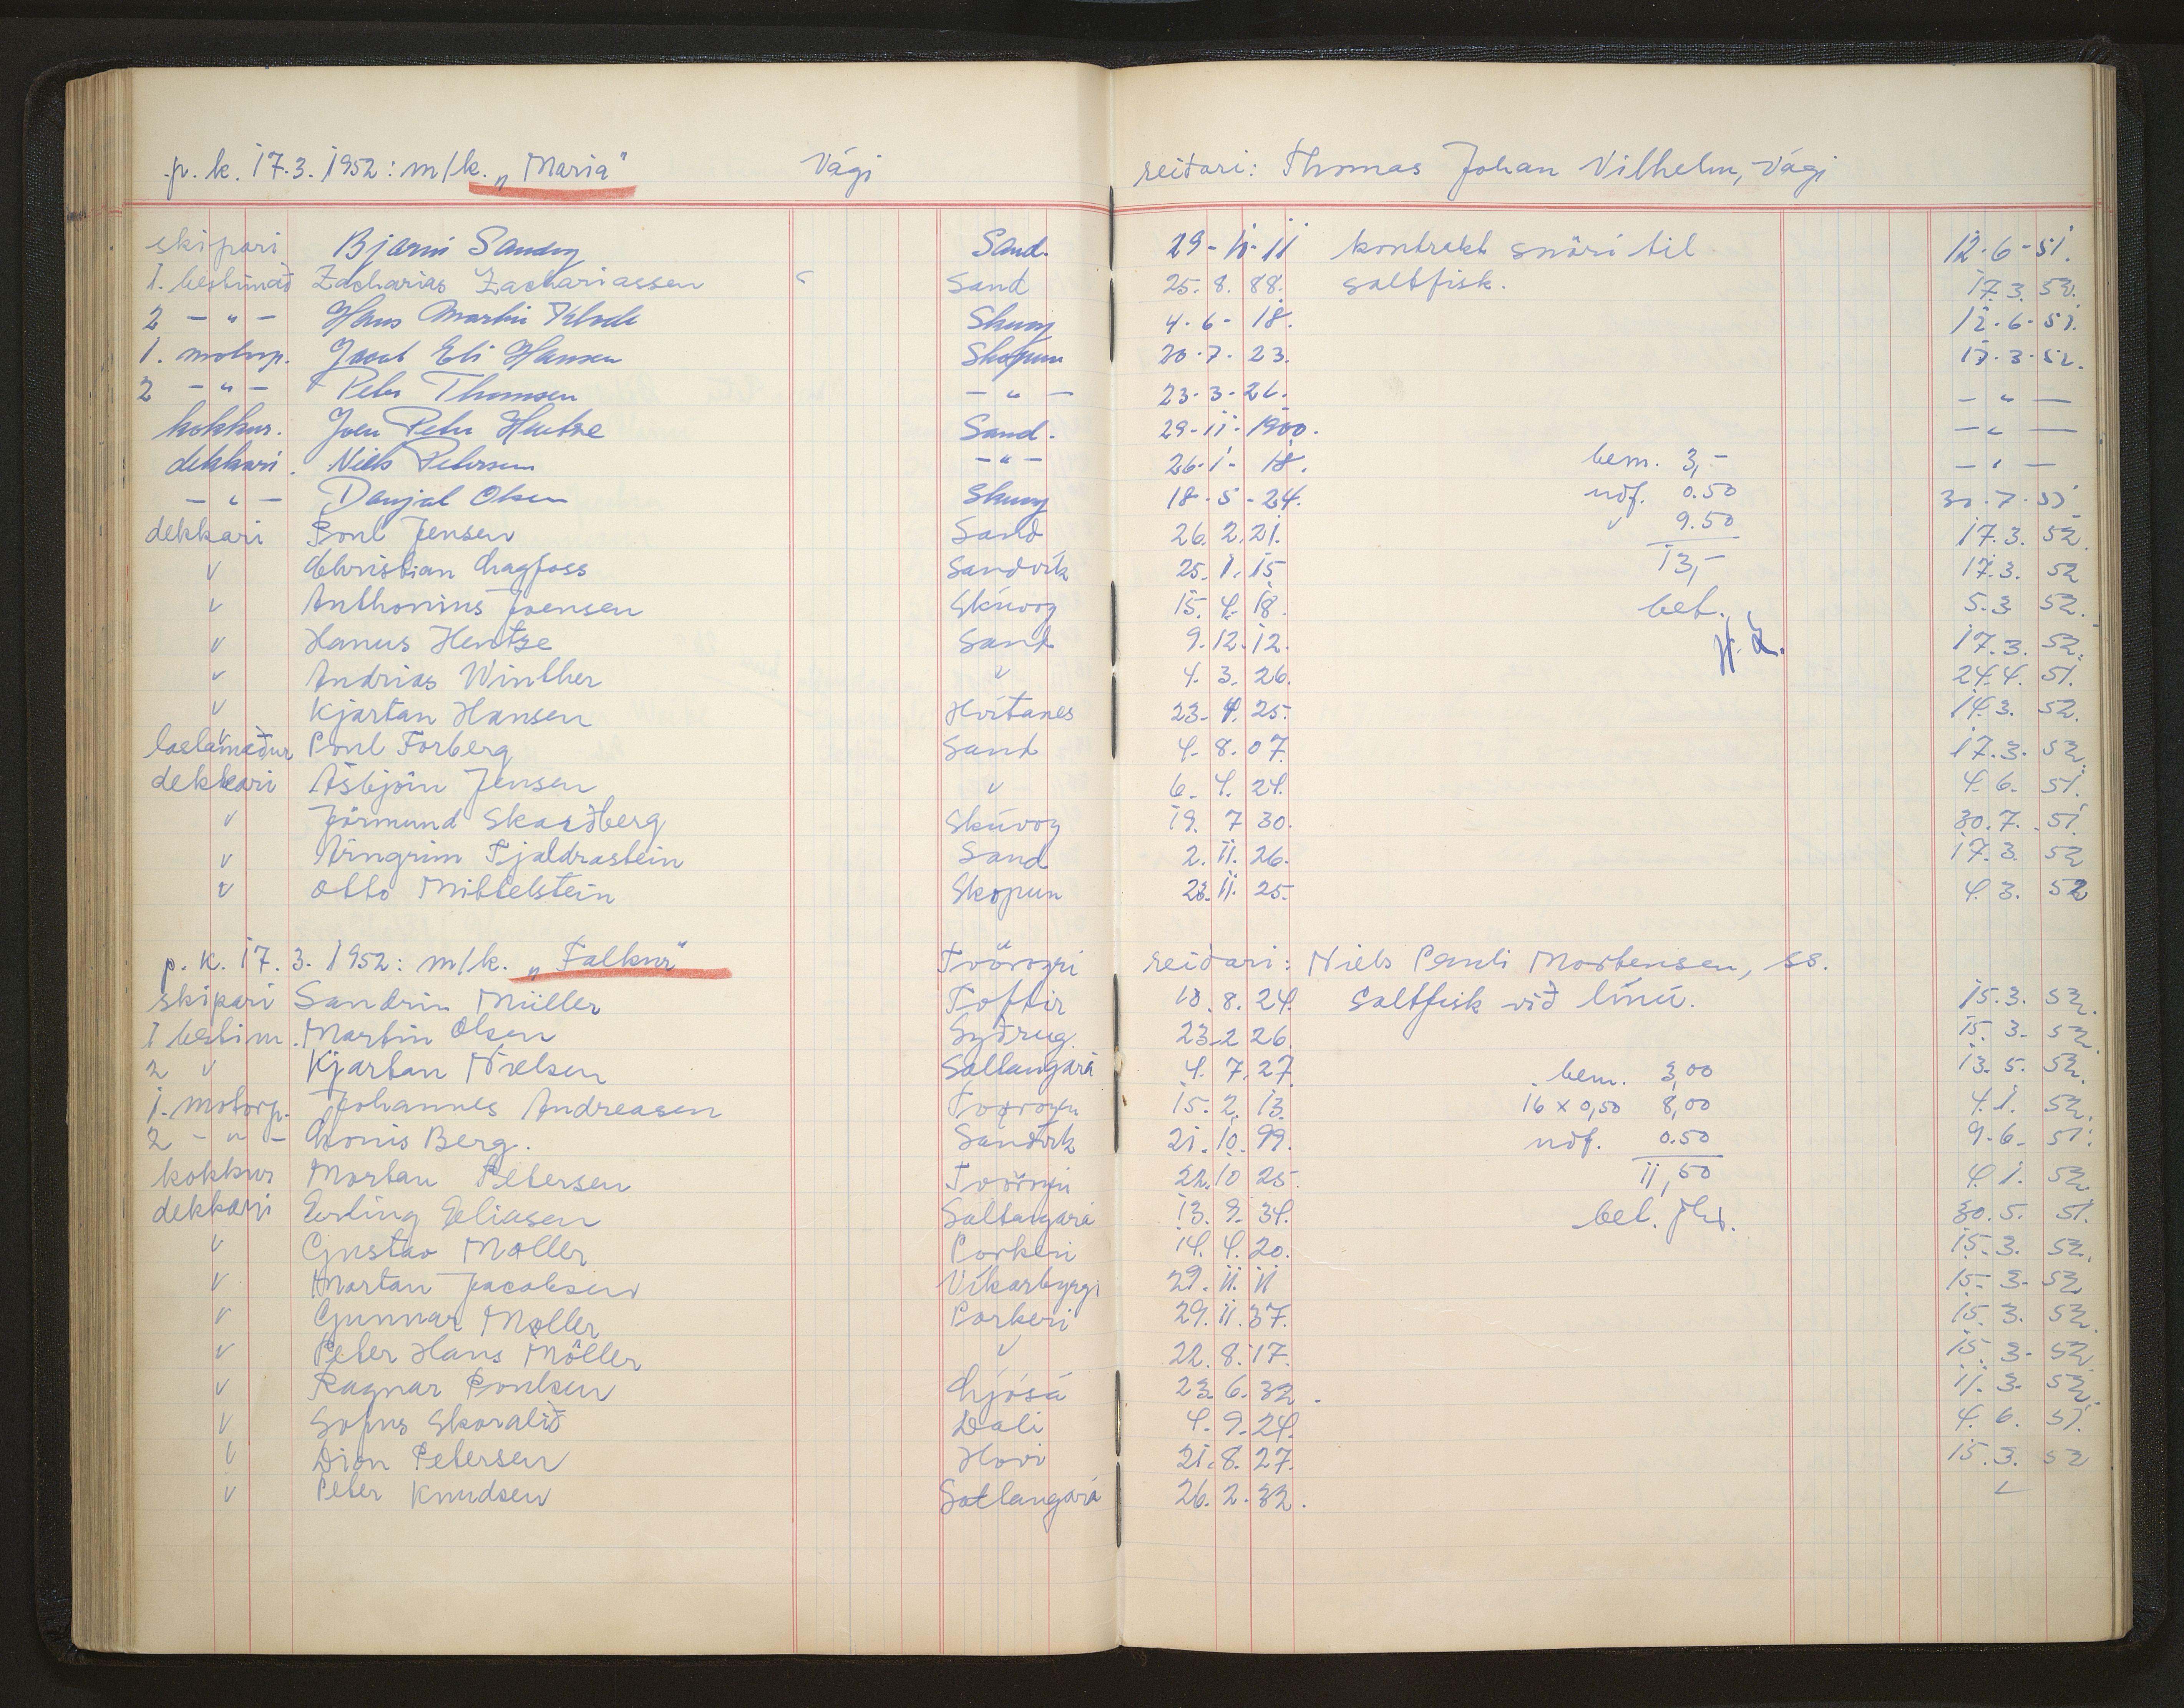 p. k. 17.3. 1952: m/k. „Maria" Vági reiðari: Thomas Johan Vilhelm, Vági
skipari Bjarni Sandoy Sand. 29-11-11 kontrakt snöri til 12.6-51.
1. bestimað Zacharias Zachariassen Sand 25. 8. 88. saltfisk. 17.3. 52.
2 - " - Hans Martin Skuvoy 4-6-18. 12-6-51.
1. motorp. Jacob Eli Hansen Skopun 20-7-23. 17-3-52.
2 - " - Peter Thomsen - " - 23-3-26. - " -
kokkur. Joen Petur Hentze Sand. 29-11-1900. - " -
dekkari. Niels Petersen - " - 26-1-18. bem. 3,- - " -
- " - Danjal Olsen Skuvoy 18-5-24. uðf. 0.50 30-7-51
dekkari Poul Jensen Sand 26. 2. 21. v 9.50 17.3. 52.
v Christian Dragfoss Sandvík 25. 1. 15 13,- 17.3. 52
v Anthonius Joensen Skúvoy 15. 4. 18. bet. 5.3. 52.
v Hanus Hentze Sand 9.12.12. 17.3. 52.
v Andrias Winther v 4. 3. 26. 24.4. 51.
v Kjartan Hansen Hvítanes 23. 4. 25. 14.3. 52.
maður Poul Forberg Sand 4. 8. 07. 17.3. 52.
dekkari Asbjörn Jensen v 6. 4. 24. 4. 6. 51.
v Jörmund Skarðberg Skúvoy 19. 7 30. 30.7. 51.
v Arngrim Tjaldrastein Sand 2. 11. 26. 17.3. 52
v Otto Mittelstein Skopun 23. 11. 25. 4. 3. 52
p. k. 17. 3. 1952: m/k. „Falkur" Tvöroyri reiðari: Niels Pauli Mortensen, ss.
skipari Sandrin Müller Toftir 10. 8. 24. Saltfisk við línu. 15.3. 52.
1 bestim. Martin Olsen Syðrug. 23-2 26. 15. 3. 52.
2 v Kjartan Nielsen Saltangará 4. 7. 27. bem. 3,00 13. 5. 52.
1. motorp. Johannes Andreasen Tvöroyri 15. 2. 13. 16 x 0,50 8,00 4. 1. 52.
2 - " - Berg. Sandvík 21. 10. 99. uðf. 0.50 9.6- 51.
kokkur Mortan Petersen Tvöroyri 22.10 25. 11,50 4. 1. 52.
dekkari Erling Eliasen Saltangará 13. 9. 34. bet. 30. 5. 51.
v Gustav Møller Porkeri 14. 4. 20. 15.3. 52.
v Mortan Jacobsen Víkarbyrgi 29. 11. 11 15. 3. 52.
v Gunnar Møller Porkeri 29. 11. 37. 15. 3. 52.
v Peter Hans Möller v 22. 8. 17. 15. 3. 52.
v Ragnar Poulsen Ljósá 23. 6. 32. 11. 3. 52.
v Sofus Skoralið Dali 4. 9. 24. 4. 6. 51.
v Dion Petersen Hovi 21. 8. 27. 15. 3. 52
v Peter Knudsen Saltangará 26. 2. 32. v